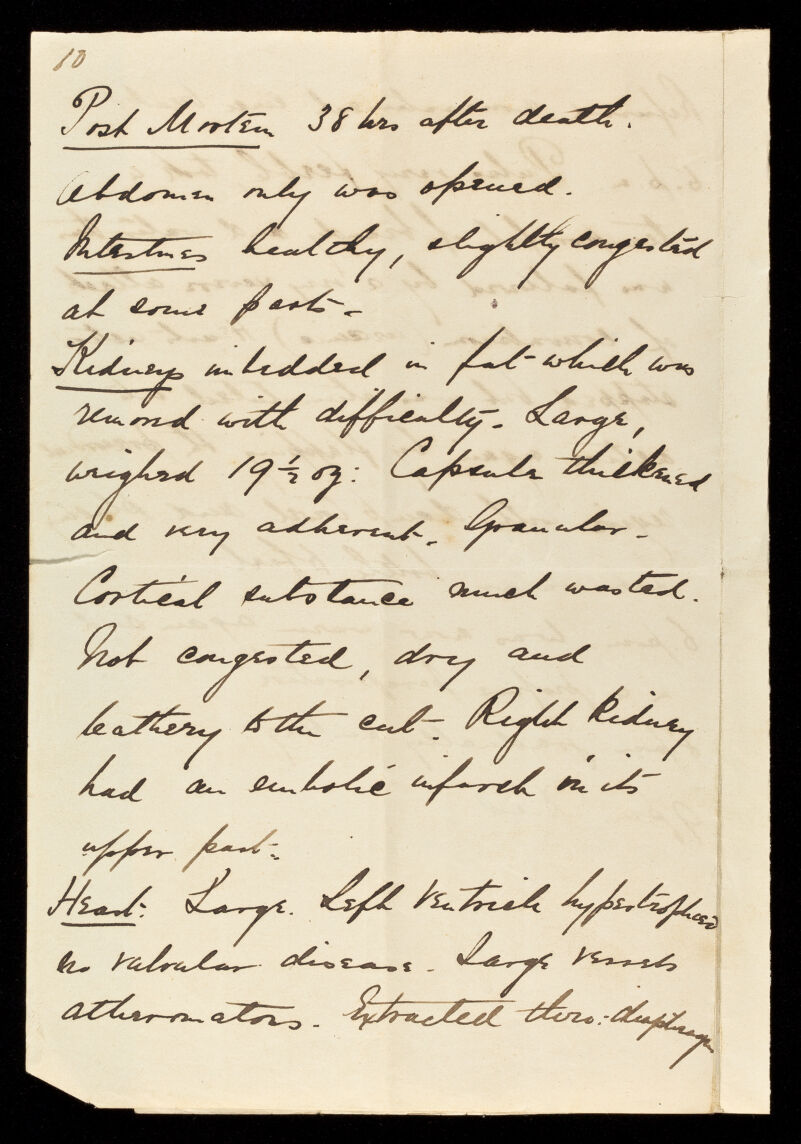 10
Post Mortem 38 hrs after death.
Abdomen only was opened.
Intestines healthy, slightly congested
at some parts -
Kidneys imbedded in fat which was
removd with difficulty. Large,
weighed 19 ½ oz: Capsule thickened
and very adherent. Granular.
Cortical substance much wasted.
Not congested, dry and
leathery to the cut. Right kidney
had an embolic infarct in its
upper part.
Heart: Large. Left Ventricle hypertrophied
no valvular disease. Large vessels
atheromatous. Extracted thro: diaphragm